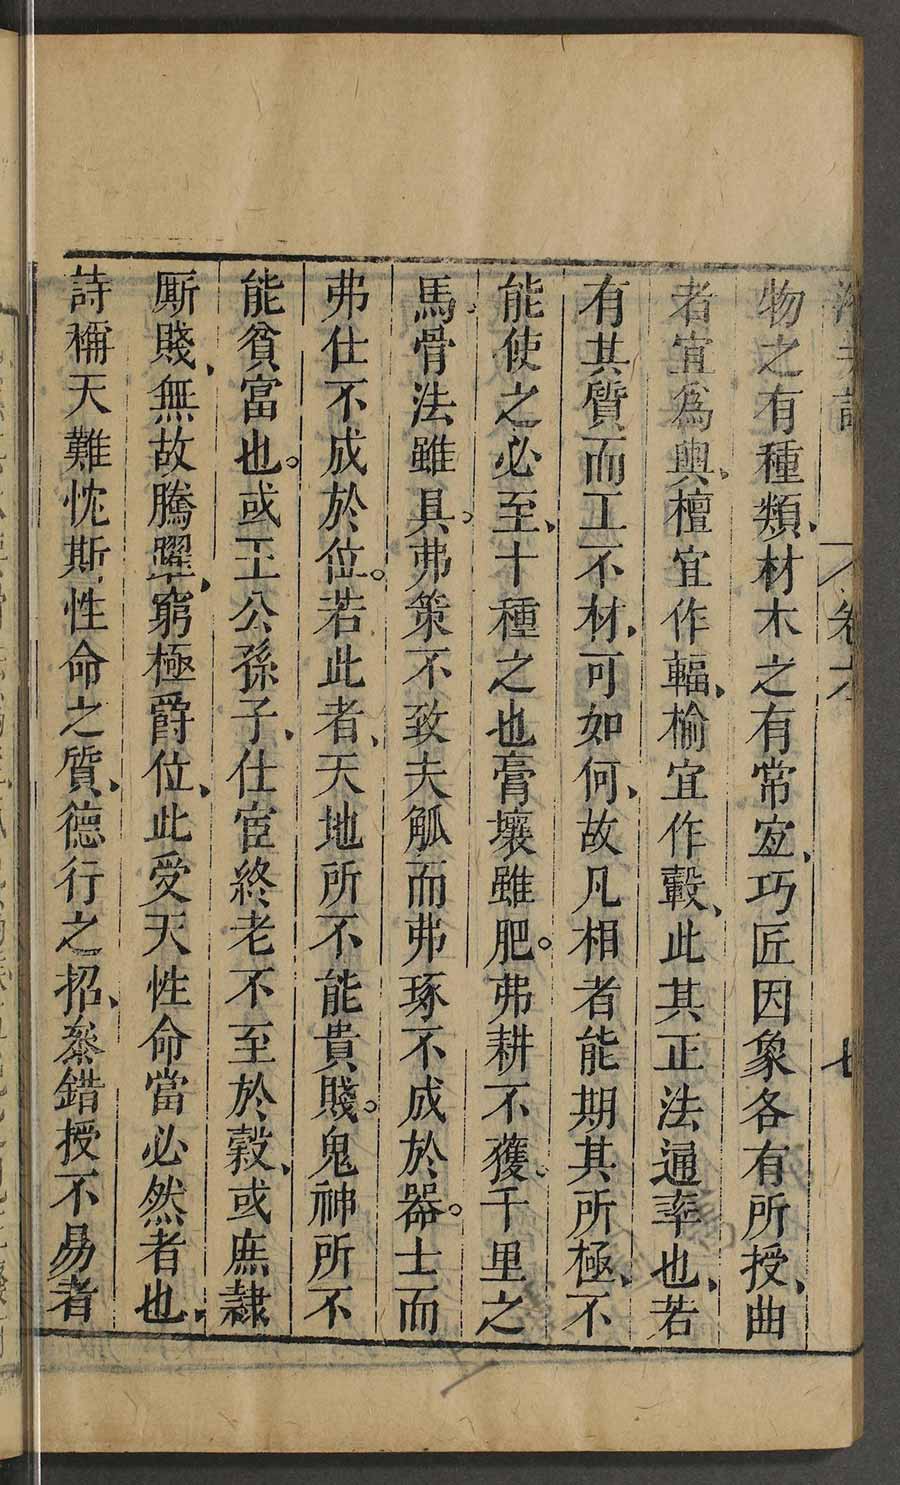 卷六
七
物之有種類材木之有常宜巧匠因象各有所授曲
者宜爲輿檀宜作輻榆宜作轂此其正法通率也若
有其質而工不材可如何故凡相者能期其所極不
能使之必至十種之也膏壤雖肥弗耕不獲千里之
馬骨法雖具弗策不致夫觚而弗琢不成於器士而
弗仕不成於位若此者天地所不能貴賤鬼神所不
能貧富也或王公孫子仕宦終老不至於穀或庶隸
厮賤無故騰躍窮極爵位此受天性命當必然者也
詩稱天難忱斯性命之質德行之招叅錯授不易者